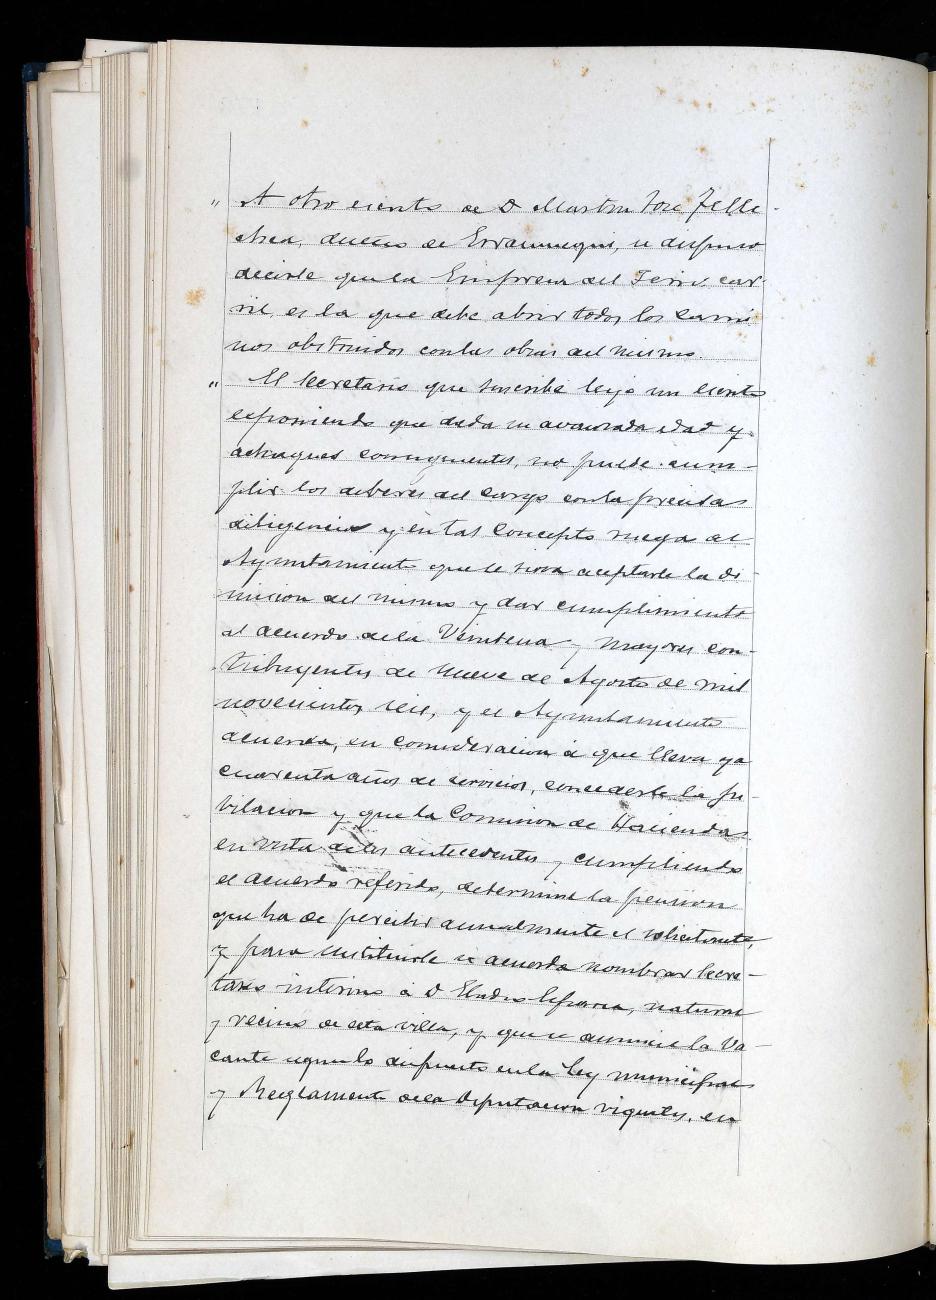 " A otro escrito de D Martin José Telle
chea, dueño de Erraunegui, se dispuso
decirle que la Empresa del Ferro car
ril, es la que debe abrir todos los cami
nos obstruidos con las obras del mismo.
" El Secretario que suscribe leyo un escrito
esponiendo que dada su avanzada edad y
achaques consiguientes, no puede cum-
plir los deberes del cargo con la precisa
diligencia y en tal concepto ruega al
Ayuntamiento que se sirva aceptarle la di-
mision del mismo y dar cumplimiento
al acuerdo de la Veintena y mayores con-
tribuyentes de nueve de Agosto de mil
novecientos seis, y el Ayuntamiento
acuerda, en consideracion á que lleva ya
cuarenta años de servicios, concederle la ju-
vilacion y que la Comision de Hacienda
en vista de los antecedentes y cumpliendo
el acuerdo referido, determine la pension
que ha de percibir anualmente el solicitante,
y para sustituirle se acuerda nombrar Secre-
tario interino á D Eladio natural
y vecino de esta villa, y que se anuncie la Va-
cante segun lo dispuesto en la Ley municipal
y Reglamento de la Diputacion vigentes, en